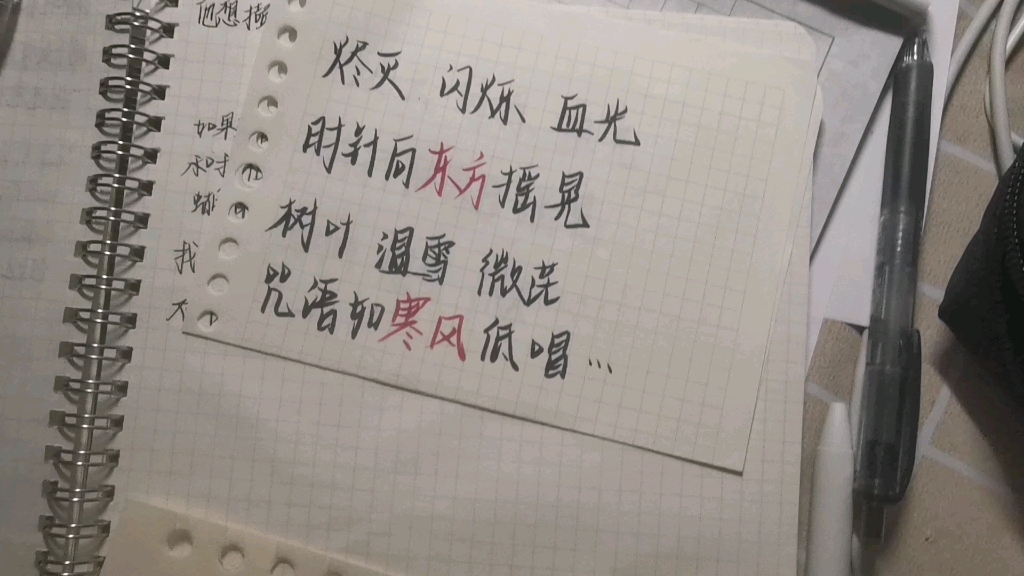 他想
烬灭 闪烁 血光
如果
时针向东方摇晃
树叶 温雪 微茫
我
咒语如寒风低唱…
大